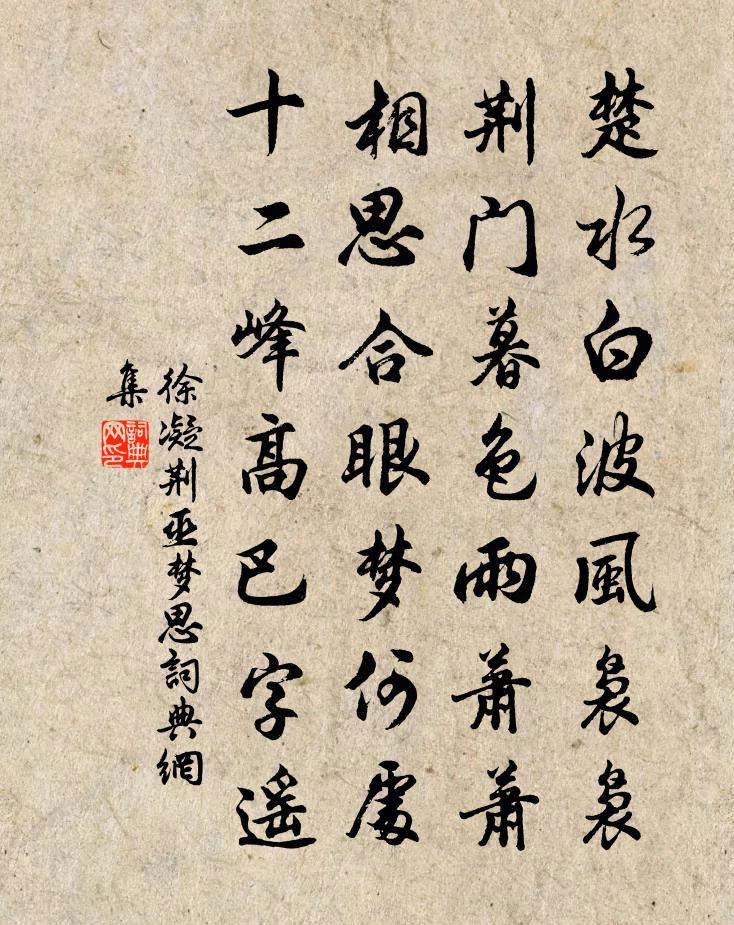 楚水白波風裊裊
荆门暮色雨萧萧
相思合眼梦何處
十二峰高巴字遥
徐凝荆巫梦思詞典網
集
詞典
网印